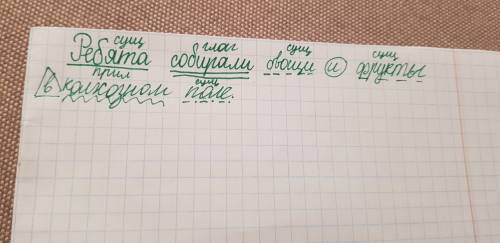 сущ глаг сущ сущ
Ребята собирали овощи и фрукты
прил сущ
в колхозном поле.